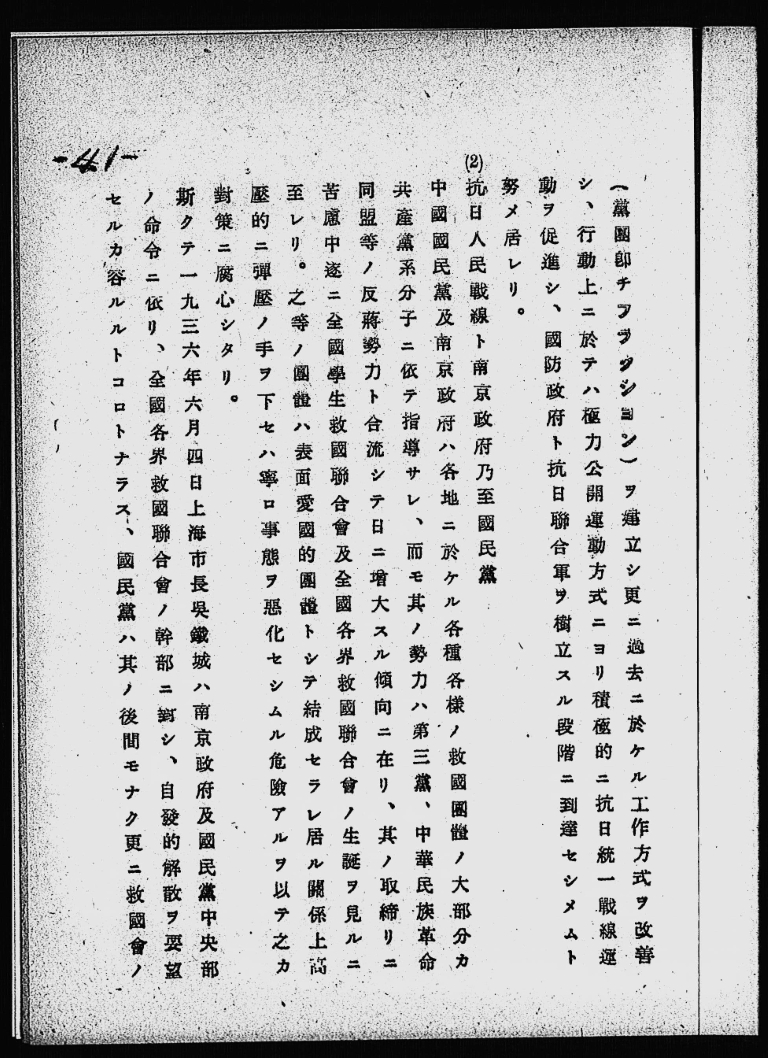 (黨團卽チフラクション)ヲ建立シ更ニ過去ニ於ケル工作方式ヲ改善
シ、行動上ニ於テハ極力公開運動方式ニヨリ積極的ニ抗日統一戰線運
動ヲ促進シ、國防政府ト抗日聯合軍ヲ樹立スル段階ニ到達セシメムト
努メ居レリ。
(2)抗日人民戰線ト南京政府乃至國民黨
中國國民黨及南京政府ハ各地ニ於ケル各種各樣ノ救國團體ノ大部分カ
共產黨系分子ニ依テ指導サレ、而モ其ノ勢力ハ第三黨、中華民族革命
同盟等ノ反蔣勢力ト合流シテ日ニ增大スル傾向ニ在リ、其ノ取締リニ
苦慮中逐ニ全國學生救國聯合會及全國各界救國聯合會ノ生誕ヲ見ルニ
至レリ。之等ノ團體ハ表面愛國的團體トシテ結成セラレ居ル關係上高
壓的ニ彈壓ノ手ヲ下セハ寧ロ事態ヲ惡化セシムル危險アルヲ以テ之カ
對策ニ腐心シタリ。
斯クテ一九三六年六月四日上海市長吳鐵城ハ南京政府及國民黨中央部
ノ命令ニ依リ、全國各界救國聯合會ノ幹部ニ對シ、自發的解散ヲ要望
セルカ容ルルトコロトナラス、國民黨ハ其ノ後間モナク更ニ救國會ノ
-41-